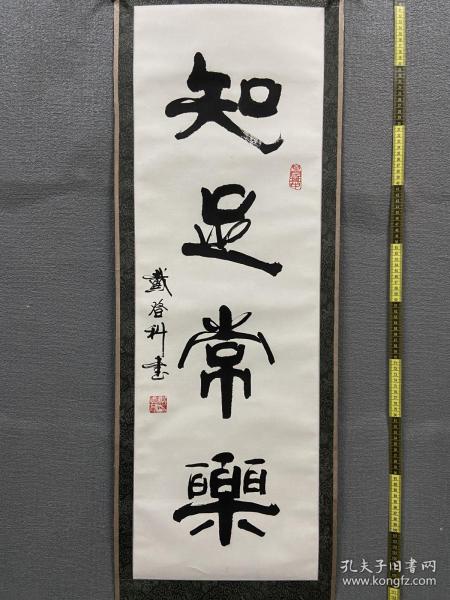 知足常樂
戴啓科書
孔夫子旧书网
www.kongfz.com